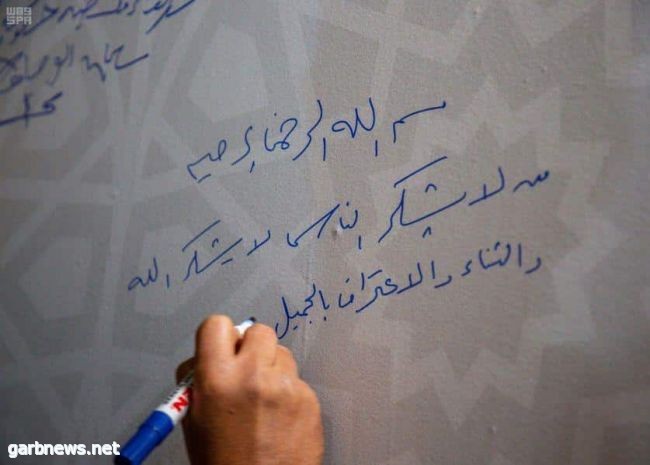 واس
SPA
بسم الله الرحمن الرحيم
من لا يشكر الناس لا يشكر الله
والثناء والاعتراف بالجميل
garbnews.net